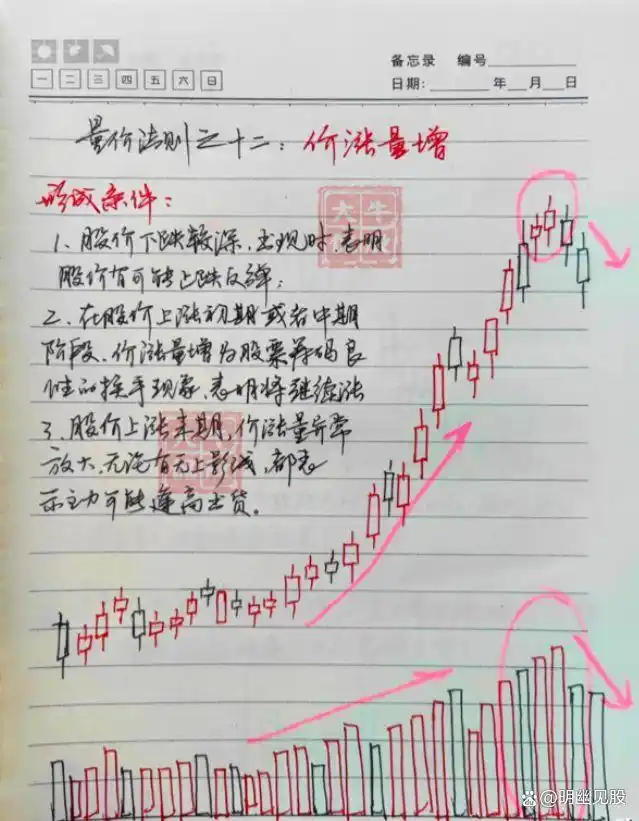 备忘录 编号
一 二 三 四 五 六 日
日期: 年 月 日
量价法则之十二：价涨量增
形成条件：
1、股价下跌较深，出现时，表明
股价有可能止跌反弹；
2、在股价上涨初期或者中期
阶段，价涨量增为股票筹码良
性的换手现象，表明将继续涨
3、股价上涨末期，价涨量异常
放大，无论有无上影线，都表
示主力可能逢高出货。
大牛
明幽见股